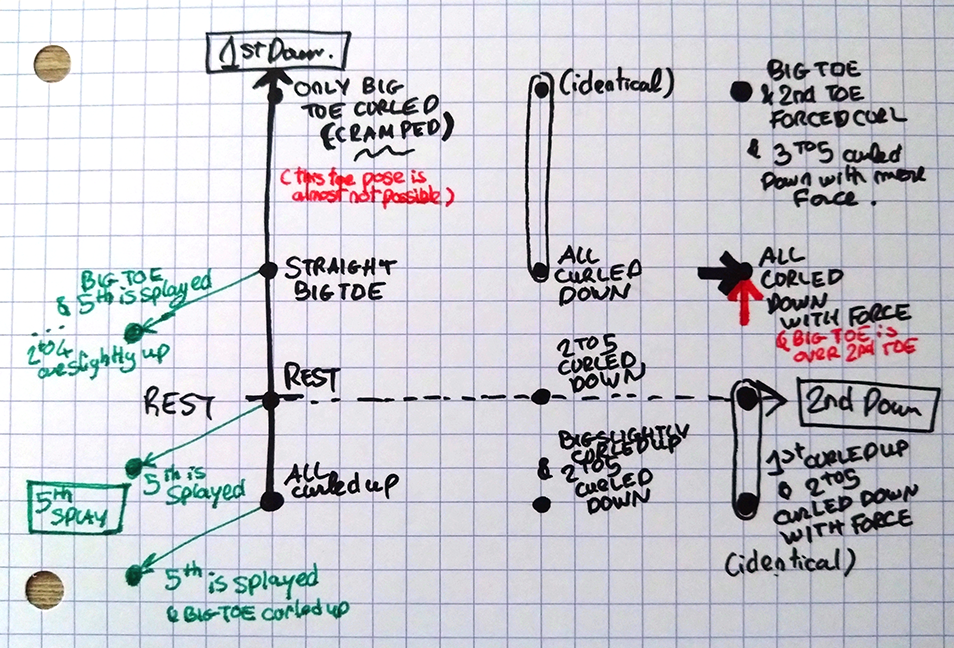 1st Down.
ONLY BIG
TOE CURLED
(CRAMPED)
(this toe pose is
almost not possible)
(identical)
BIG TOE
& 2nd TOE
FORCED CURL
& 3 TO 5 curled
Down with more
Force.
BIG TOE
& 5th is splayed
... 2 to 4
are slightly up
STRAIGHT
BIG TOE
ALL
CURLED
DOWN
ALL
CURLED
DOWN
WITH FORCE
& BIG TOE is
OVER 2nd TOE
REST
REST
2 TO 5
CURLED
DOWN
2nd Down
5th is
splayed
5th
SPLAY
ALL
curled up
BIG SLIGHTLY
CURLED UP
& 2 TO 5
CURLED
DOWN
1st CURLED UP
& 2 TO 5
CURLED DOWN
WITH FORCE
(identical)
5th is splayed
& BIG TOE curled up